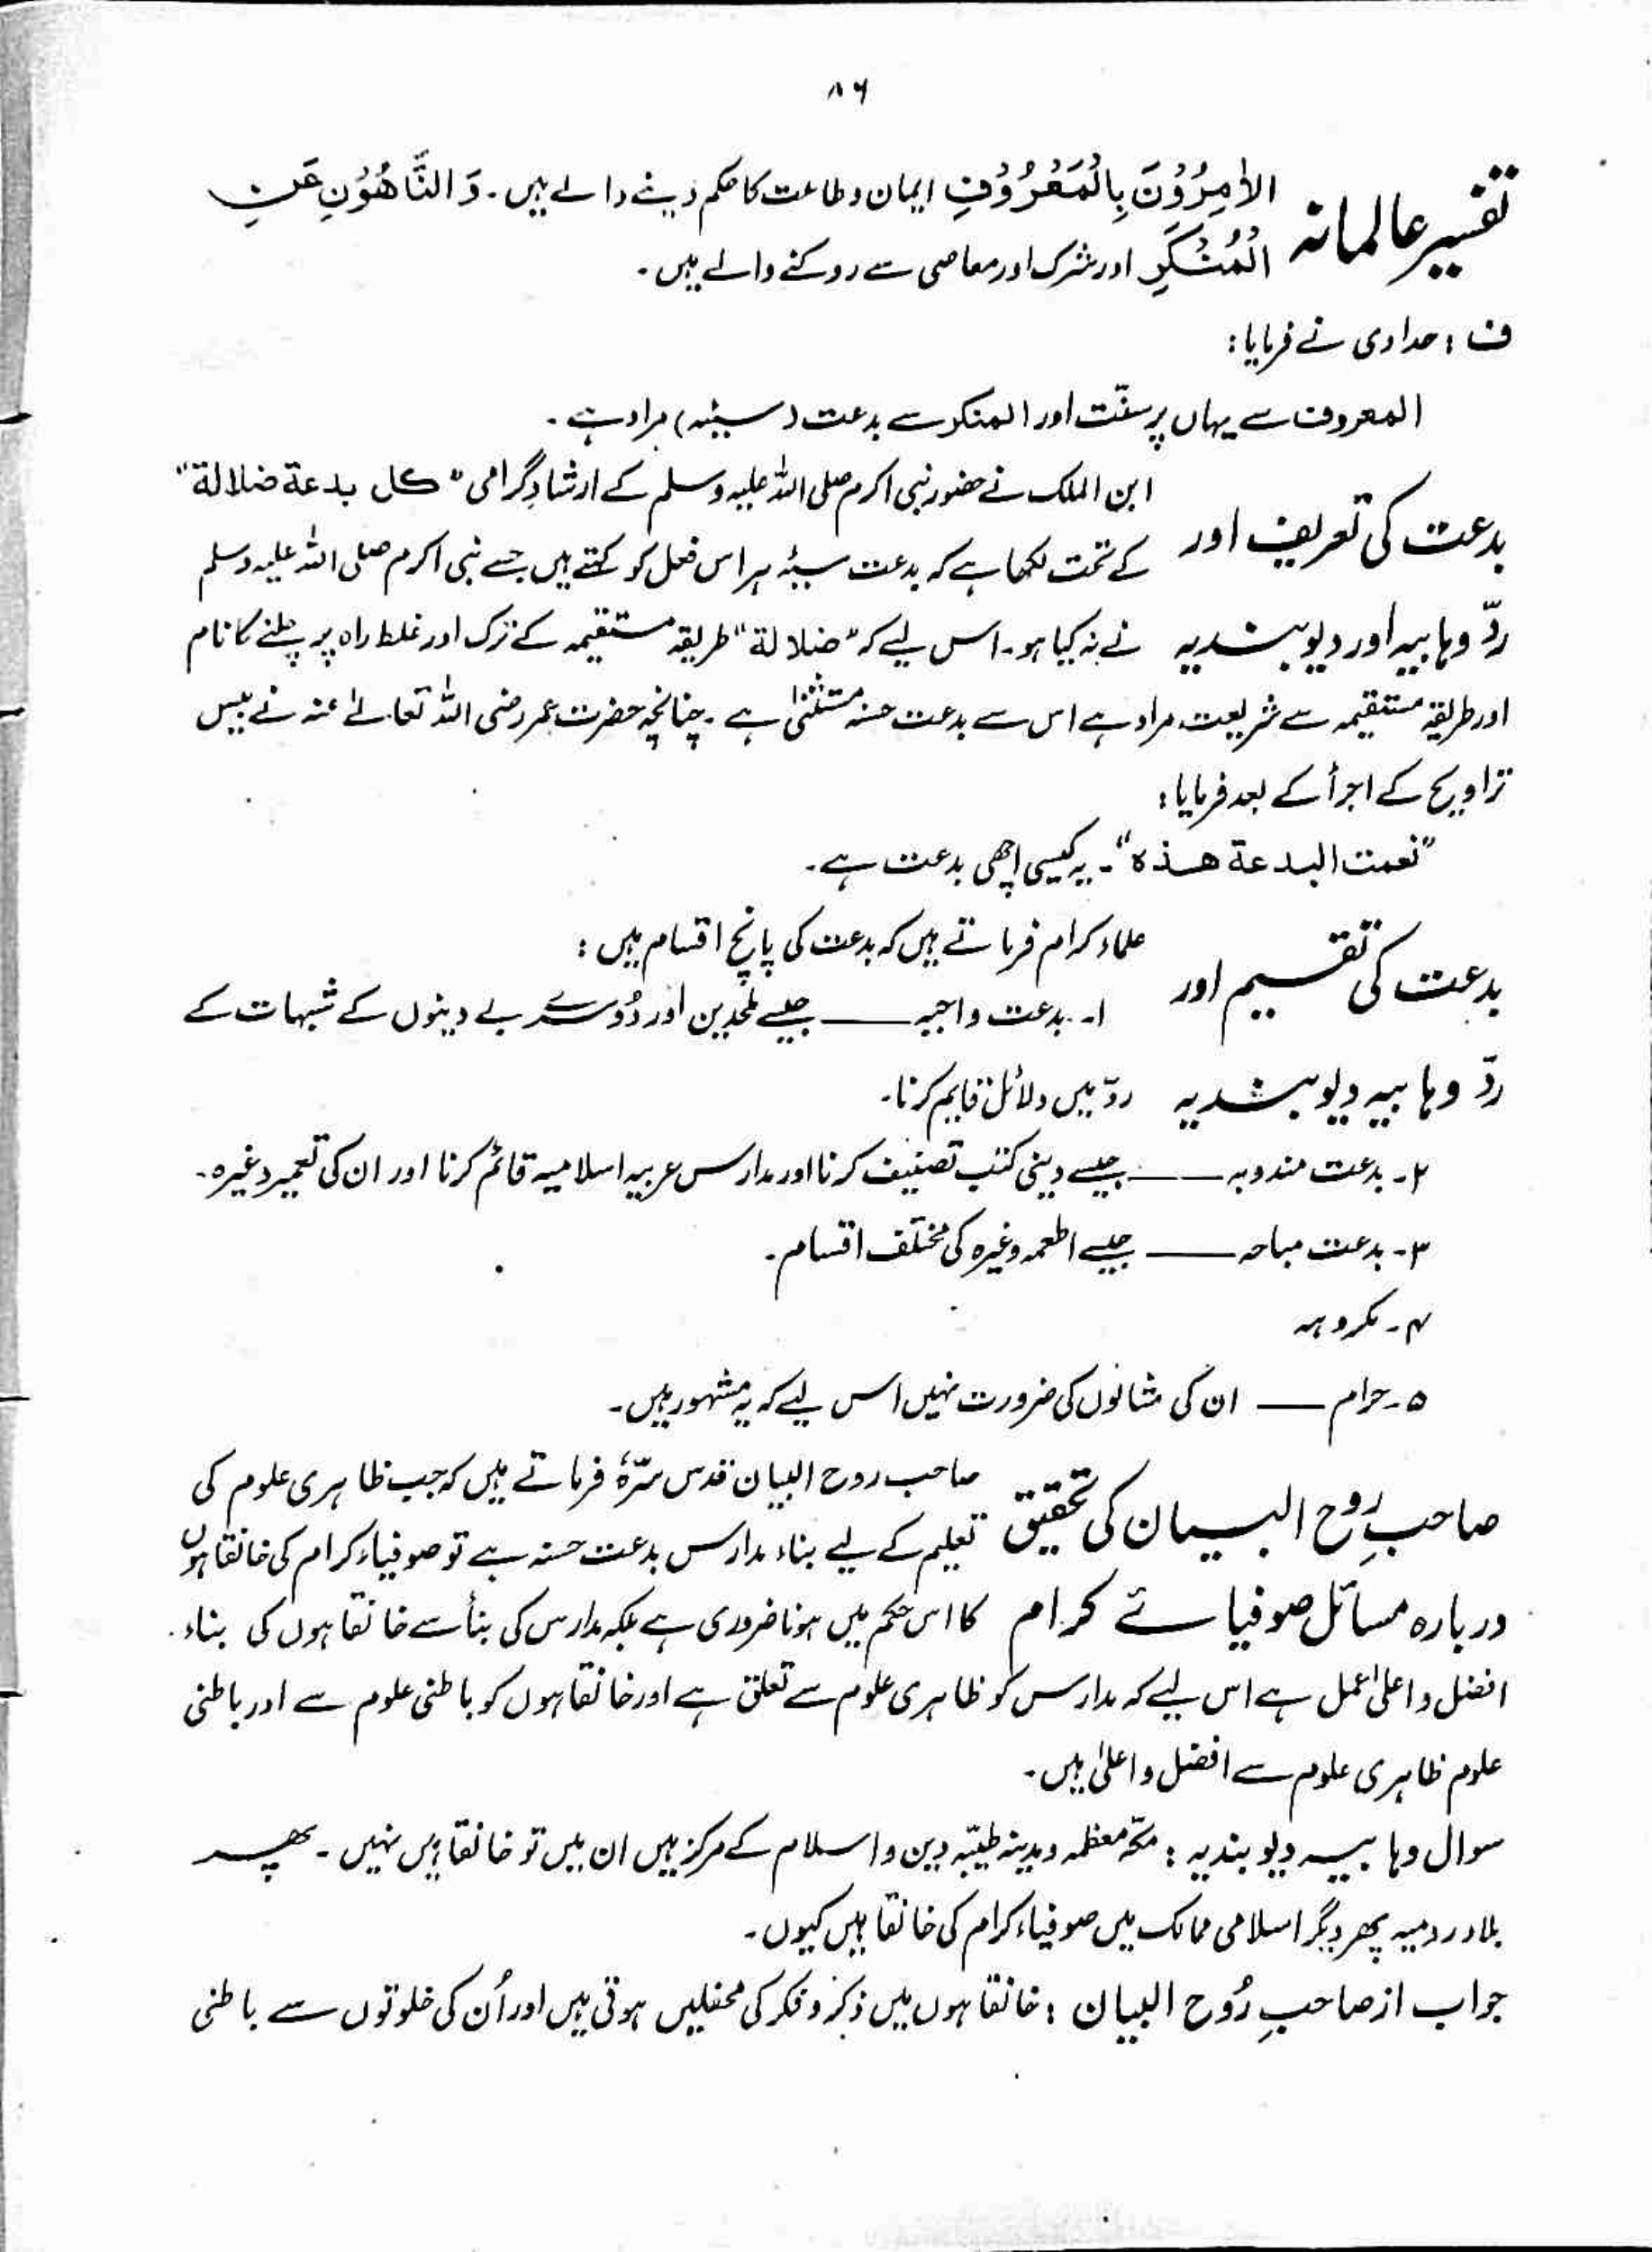 ۸۶
تفسیر عالمانہ
الْاٰمِرُوْنَ بِالْمَعْرُوْفِ ایمان و طاعت کا حکم دینے والے ہیں۔ وَالنَّاهُوْنِ عَنِ
الْمُنْكَرِ اور شرک اور معاصی سے روکنے والے ہیں۔
ف : حدادی نے فرمایا:
المعروف سے یہاں پر سنّت اور المنکر سے بدعت (سیئہ) مراد ہے۔
ابن الملک نے حضور نبی اکرم صلی اللہ علیہ وسلم کے ارشادِ گرامی "کل بدعة ضلالة"
بدعت کی تعریف اور
کے تحت لکھا ہے کہ بدعت سیئہ ہر اس فعل کو کہتے ہیں جسے نبی اکرم صلی اللہ علیہ وسلم
ردّ وہابیہ اور دیوبندیہ نے نہ کیا ہو۔ اس لیے کہ "ضلالة" طریقہ مستقیمہ کے ترک اور غلط راہ پر چلنے کا نام
اور طریقہ مستقیمہ سے شریعت مراد ہے اس سے بدعت حسنہ مستثنیٰ ہے۔ چنانچہ حضرت عمر رضی اللہ تعالےٰ عنہ نے بیس
تراویح کے اجرأ کے بعد فرمایا:
"نعمت البدعة هذه"۔ یہ کیسی اچھی بدعت ہے۔
علماء کرام فرماتے ہیں کہ بدعت کی پانچ اقسام ہیں :
بدعت کی تقسیم اور
۱۔ بدعت واجبہ ــــــ جیسے ملحدین اور دُوسرے بے دینوں کے شبہات کے
ردّ وہابیہ دیوبندیہ ردّ میں دلائل قایم کرنا۔
۲۔ بدعت مندوبہ ــــــ جیسے دینی کتب تصنیف کرنا اور مدارس عربیہ اسلامیہ قائم کرنا اور ان کی تعمیر وغیرہ۔
۳۔ بدعت مباحہ ــــــ جیسے اطعمہ وغیرہ کی مختلف اقسام۔
۴۔ مکروہہ
۵۔ حرام ــــــ ان کی مثالوں کی ضرورت نہیں اس لیے کہ یہ مشہور ہیں۔
صاحب روح البیان قدس سرّہٗ فرماتے ہیں کہ جب ظاہری علوم کی
صاحبِ روح البیان کی تحقیق
تعلیم کے لیے بناء مدارس بدعت حسنہ ہے تو صوفیاء کرام کی خانقاہوں
دربارہ مسائل صوفیائے کرام کا اس حکم میں ہونا ضروری ہے بلکہ مدارس کی بنأ سے خانقاہوں کی بناء
افضل و اعلیٰ عمل ہے اس لیے کہ مدارس کو ظاہری علوم سے تعلق ہے اور خانقاہوں کو باطنی علوم سے اور باطنی
علوم ظاہری علوم سے افضل و اعلیٰ ہیں۔
سوال وہابیہ دیوبندیہ : مکّہ معظمہ و مدینہ طیّبہ دین و اسلام کے مرکز ہیں ان میں تو خانقاہیں نہیں۔ پھر
بلاد رومیہ پھر دیگر اسلامی ممالک میں صوفیاء کرام کی خانقاہیں کیوں۔
جواب از صاحبِ رُوح البیان : خانقاہوں میں ذکر و فکر کی محفلیں ہوتی ہیں اور اُن کی خلوتوں سے باطنی